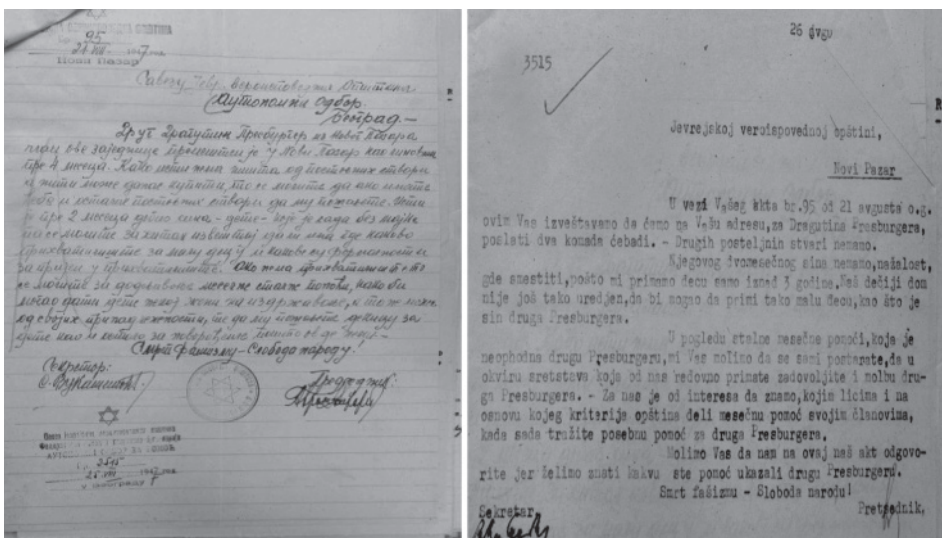 95
21 VIII 1947 год.
Нови Пазар
Савезу Јевр. Вероисповедних Општина
Аутономни Одбор
Београд.-
Друг Драгутин Пресбургер из Новог Пазара
члан ове заједнице премештен је у Нови Пазар као
пре 4 месеца. Како нема ништа од постелних ствари
се молите да ако имате
ћебета и остале постелне ствари да му пошаљете.
је пре 2 месеца добио сина - дете - које је сада без мајке
па се молите за хитан извештај да ли има где какво
прихватилиште за малу децу и какве су формалности
за пријем у прихватилиште. Ако нема прихватилишта то
се молите за додељивање месечне сталне помоћи, како би
могао дати дете некој жени на издржавање, а то ако може
од својих принадлежности, те да му пошаљете
дете као и
Смрт фашизму - Слобода народу!
Секретар:
Председник:
3515
25. VIII 1947 год.
26 avgu
3515
Jevrejskoj veroispovednoj opštini,
Novi Pazar
U vezi Vašeg akta br.95 od 21 avgusta o.g.
ovim Vas izveštavamo da ćemo na Vašu adresu,za Dragutina Presburgera,
poslati dva komada ćebadi. - Drugih posteljnih stvari nemamo.
Njegovog dvomesečnog sina nemamo,nažalost,
gde smestiti,pošto mi primamo decu samo iznad 3 godine.Naš dečiji dom
nije još tako uredjen,da bi mogao da primi tako malu decu,kao što je
sin druga Presburgera.
U pogledu stalne mesečne pomoći,koja je
neophodna drugu Presburgeru,mi Vas molimo da se sami postarate,da u
okviru sretstava koja od nas redovno primate zadovoljite i molbu dru-
ga Presburgera. - Za nas je od interesa da znamo,kojim licima i na
osnovu kojeg kriterija opština deli mesečnu pomoć svojim članovima,
kada sada tražite posebnu pomoć za druga Presburgera.
Molimo Vas da nam na ovaj naš akt odgovo-
rite jer želimo znati kakvu ste pomoć ukazali drugu Presburgeru.
Smrt fašizmu - Sloboda narodu!
Sekretar
Pretsednik,